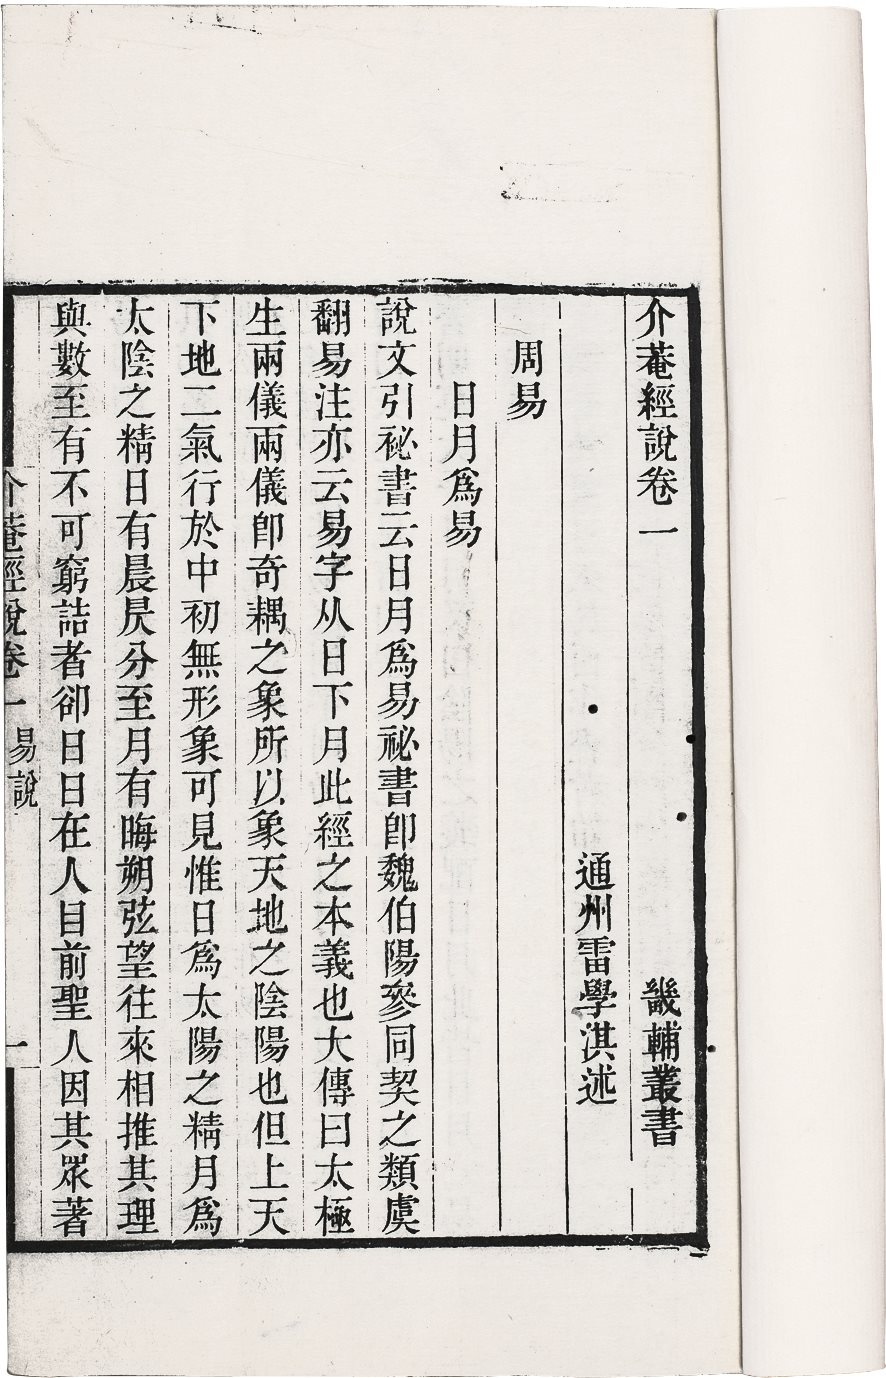 介菴經說卷一 畿輔叢書
通州雷學淇述
周易
日月爲易
說文引祕書云日月爲易祕書卽魏伯陽參同契之類虞
翻易注亦云易字从日下月此經之本義也大傳曰太極
生兩儀兩儀卽奇耦之象所以象天地之陰陽也但上天
下地二氣行於中初無形象可見惟日爲太陽之精月爲
太陰之精日有晨昃分至月有晦朔弦望往來相推其理
與數至有不可窮詰者卻日日在人目前聖人因其眾著
介菴經說卷一 易說 一